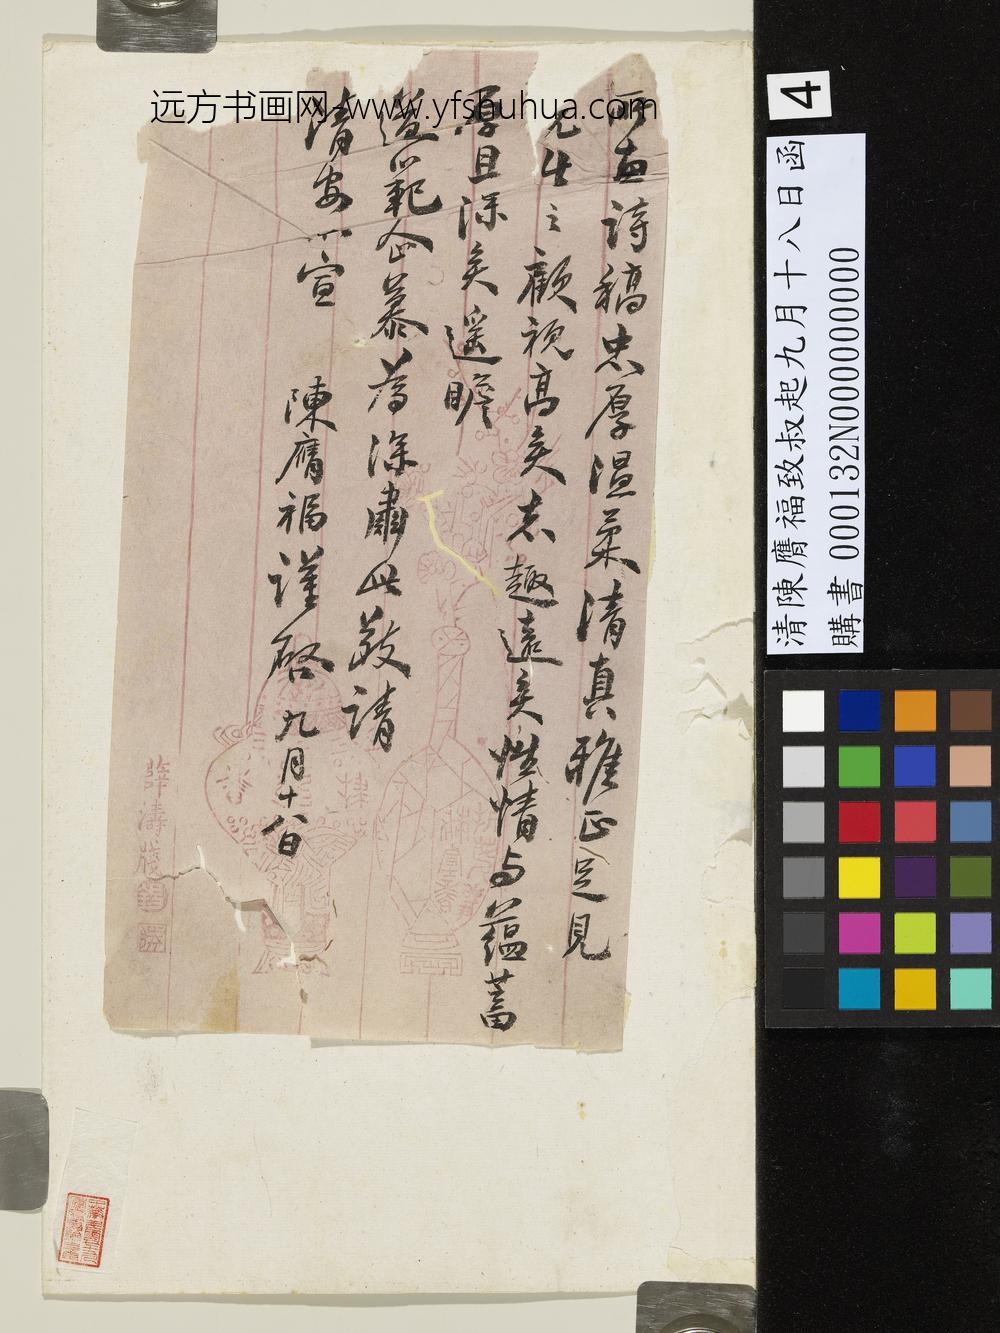 远方书画网-www.yfshuhua.com
惠詩稿忠厚溫柔清真雅正足見
先生之顧視高矣志趣遠矣性情与蘊蓄
厚且深矣遥瞻
道範企慕為深肅此敬請
清安不宣
陳膺福謹啓九月十八日
薛濤牋
4
清陳膺福致叔起九月十八日函
購書 000132N000000000